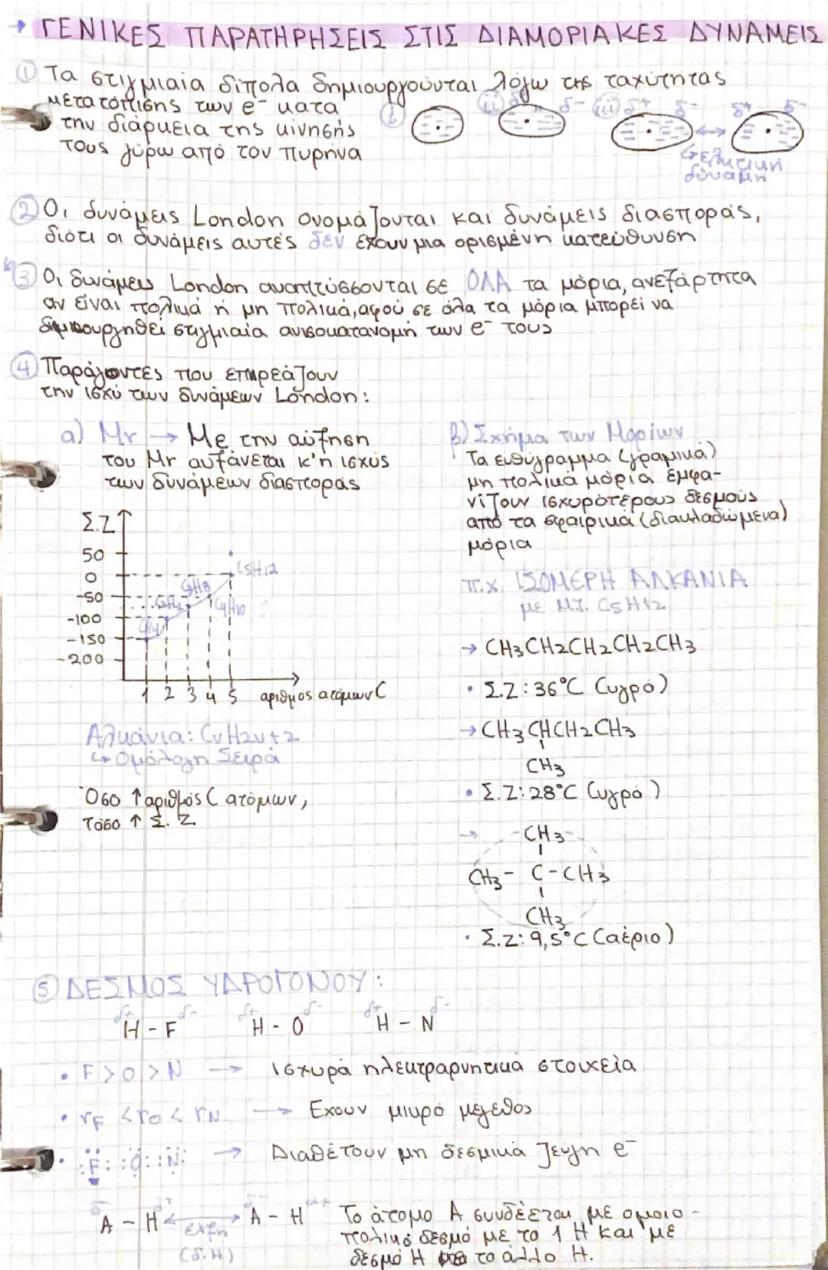 → ΓΕΝΙΚΕΣ ΠΑΡΑΤΗΡΗΣΕΙΣ ΣΤΙΣ ΔΙΑΜΟΡΙΑΚΕΣ ΔΥΝΑΜΕΙΣ
① Τα στιγμιαία δίπολα δημιουργούνται λόγω της ταχύτητας
μετατόπισης των e⁻ κατα
την διάρκεια της κίνησής
τους γύρω από τον πυρήνα
i ii δ⁻ iii δ+ δ⁻ δ+ δ⁻
↳ ελκτική
δύναμη
② Οι δυνάμεις London ονομάζονται και δυνάμεις διασποράς,
διότι οι δυνάμεις αυτές δεν έχουν μια ορισμένη κατεύθυνση
③ Οι δυνάμεις London αναπτύσσονται σε ΟΛΑ τα μόρια, ανεξάρτητα
αν είναι πολικά ή μη πολικά, αφού σε όλα τα μόρια μπορεί να
δημιουργηθεί στιγμιαία ανισοκατανομή των e⁻ τους
④ Παράγοντες που επηρεάζουν
την ισχύ των δυνάμεων London:
α) Mr → Με την αύξηση
του Mr αυξάνεται κ'η ισχύς
των δυνάμεων διασποράς
Σ.Ζ
50
0
-50
-100
-150
-200
CH4
C2H6
C3H8
C4H10
C5H12
1 2 3 4 5 αριθμος ατόμων C
Αλκάνια: CνH2ν+2
↳ Ομόλογη Σειρά
Όσο ↑ αριθμός C ατόμων,
τόσο ↑ Σ.Ζ.
β) Σχήμα των Μορίων
Τα ευθύγραμμα (γραμικά)
μη πολικά μόρια εμφα-
νίζουν ισχυρότερους δεσμούς
από τα σφαιρικά (διακλαδωμένα)
μόρια
π.χ. ΙΣΟΜΕΡΗ ΑΛΚΑΝΙΑ
με Μ.Τ. C5H12
→ CH3CH2CH2CH2CH3
• Σ.Ζ: 36°C (υγρό)
→ CH3CHCH2CH3
CH3
• Σ.Ζ: 28°C (υγρό)
→ CH3
CH3- C-CH3
CH3
• Σ.Ζ: 9,5°C (αέριο)
⑤ ΔΕΣΜΟΣ ΥΔΡΟΓΟΝΟΥ:
δ+ δ⁻ δ+ δ⁻ δ+ δ⁻
H - F H - O H - N
• F > O > N → Ισχυρά ηλεκτραρνητικά στοιχεία
• rF < rO < rN → Έχουν μικρό μέγεθος
• F : O : N → Διαθέτουν μη δεσμικά ζεύγη e⁻
A - H ↔ A - H Το άτομο Α συνδέεται με ομοιο-
έλξη πολικό δεσμό με το 1 Η και με
(δ.Η) δεσμό Η το άλλο Η.